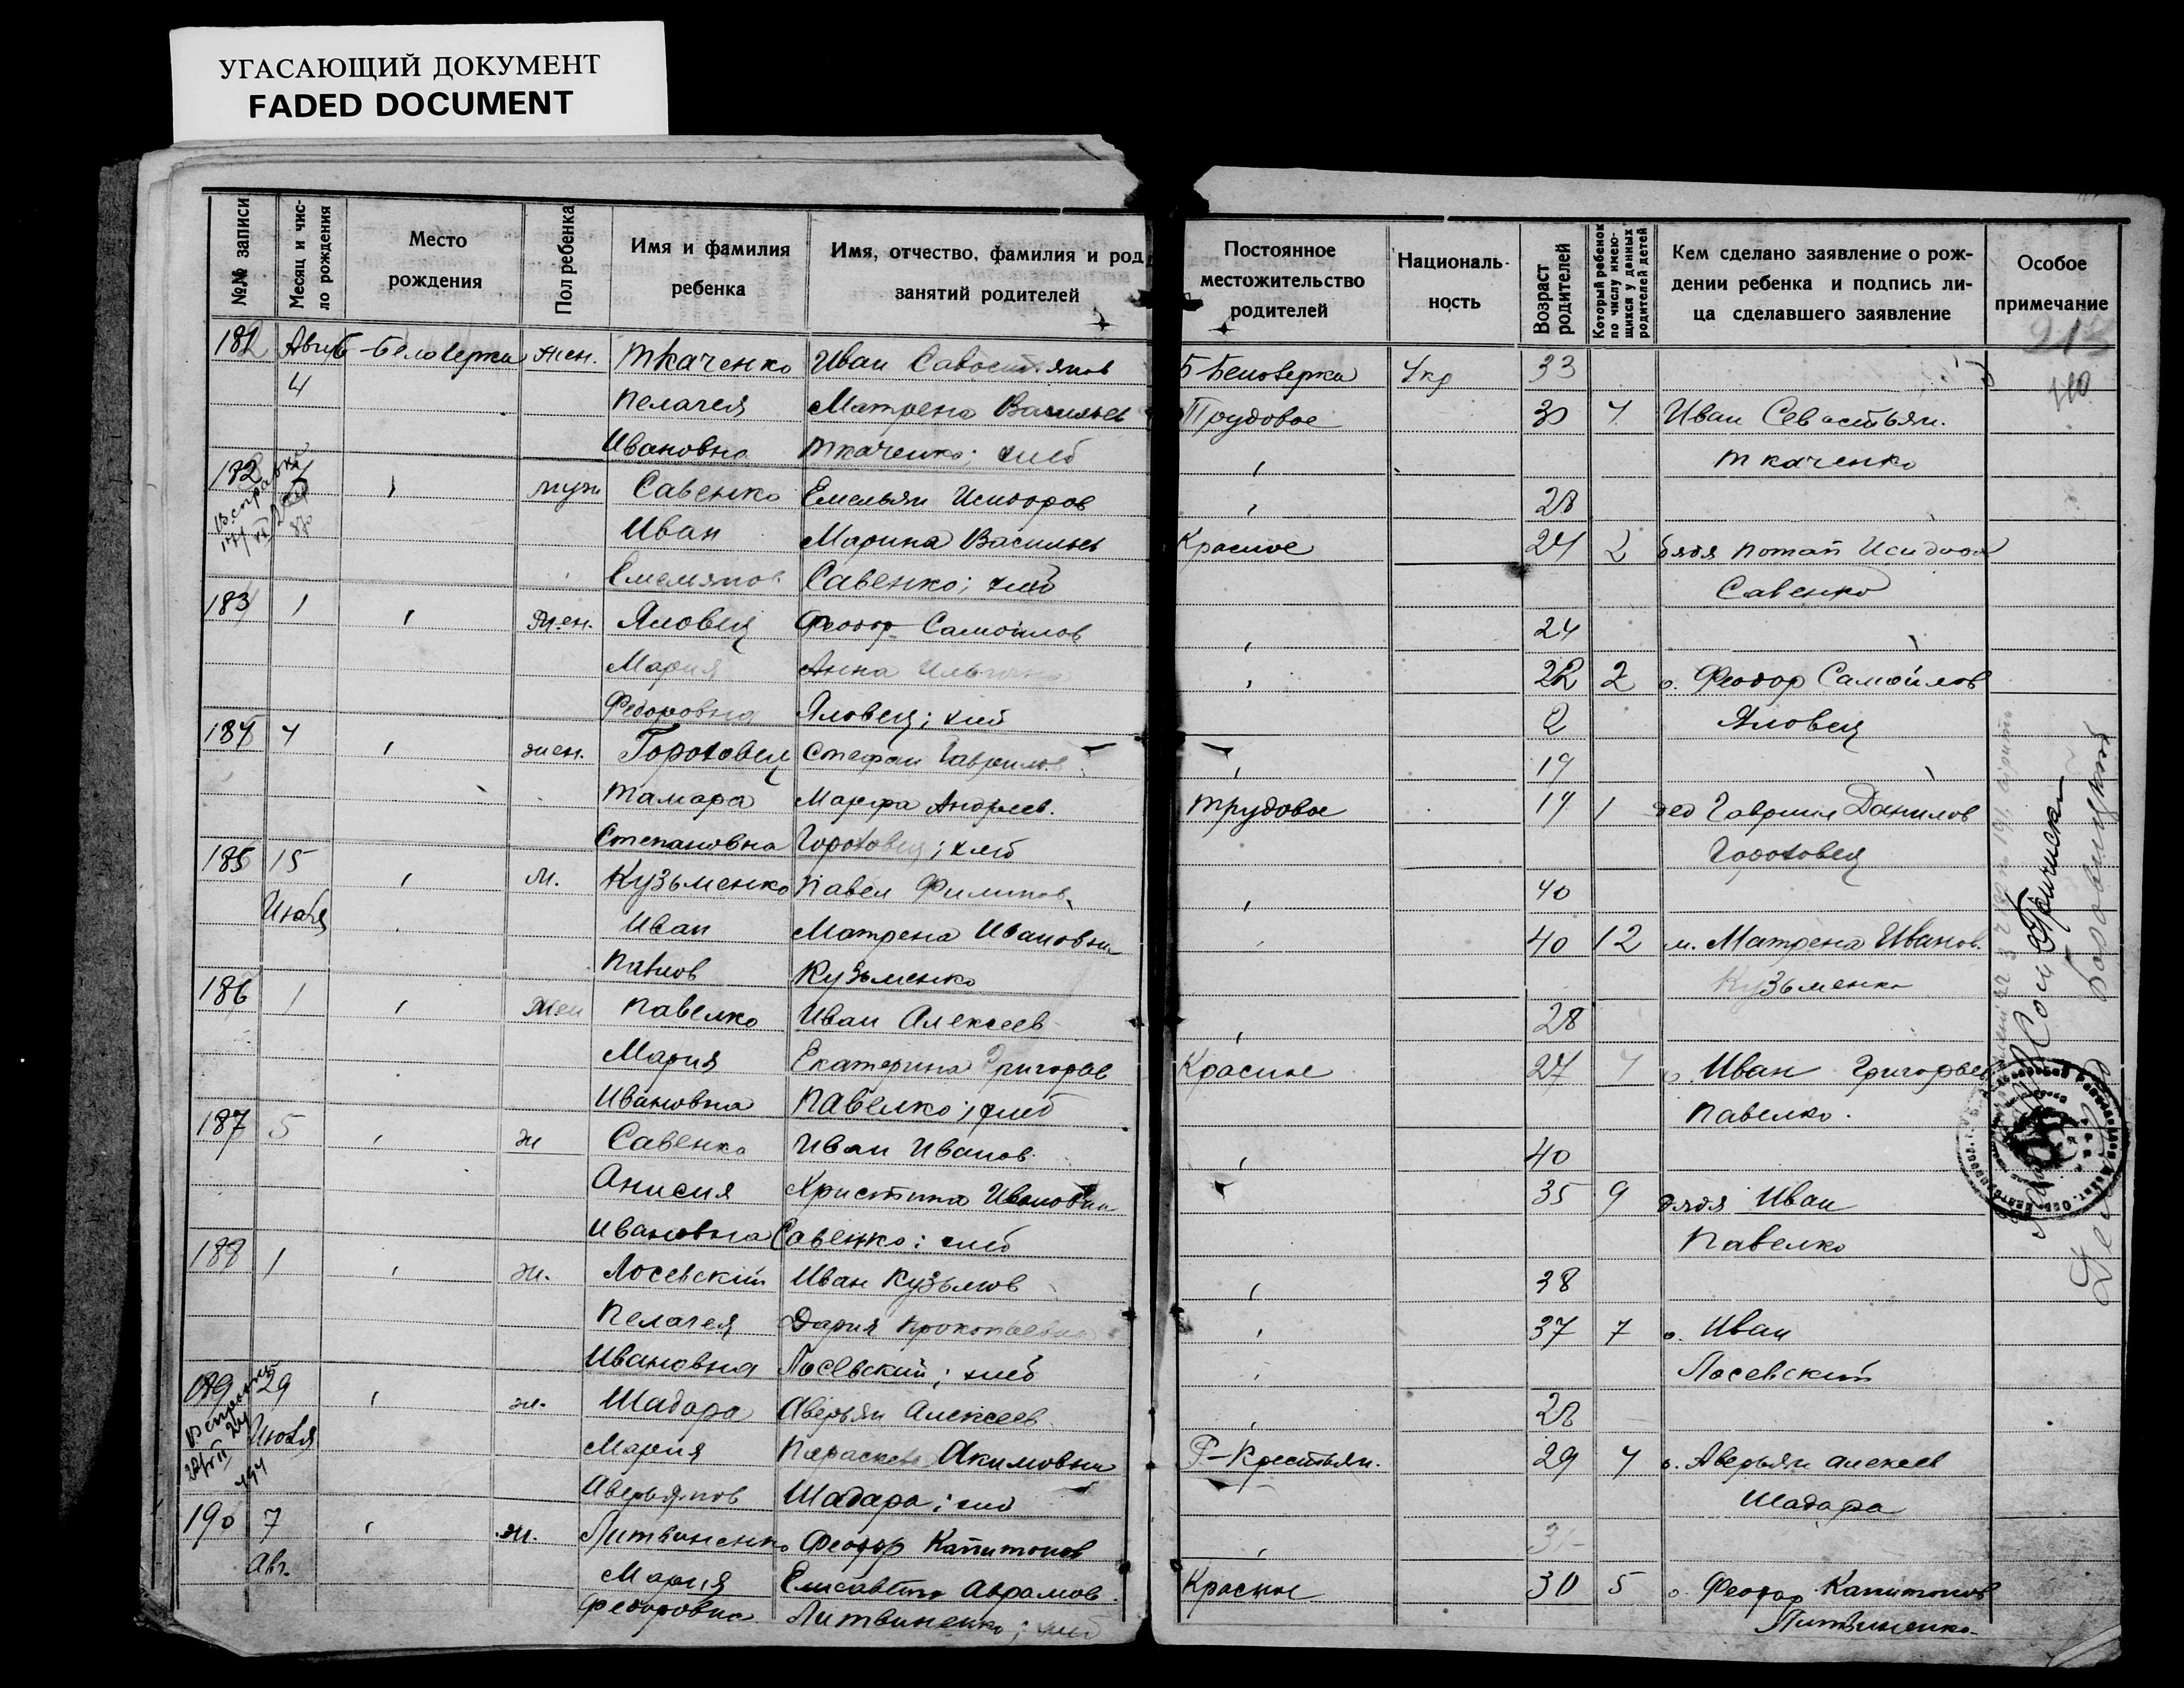 УГАСАЮЩИЙ ДОКУМЕНТ
FADED DOCUMENT
№№ записи
Месяц и чис-
ло рождения
Место
рождения
Пол ребенка
Имя и фамилия
ребенка
Имя, отчество, фамилия и род
занятий родителей
Постоянное
местожительство
родителей
Националь-
ность
Возраст
родителей
Который ребенок
по числу имею-
щихся у данных
родителей детей
Кем сделано заявление о рож-
дении ребенка и подпись ли-
ца сделавшего заявление
Особое
примечание
213
181 Б-Белозерка жен. Ткаченко Иван Савостянов Б-Белозерка Укр 33
4 Пелагея Матрена Васильев Трудовое 30 4 Иван Севастьян.
Ивановна Ткаченко; хлеб Ткаченко
182 муж Савенко Емельян Исидоров 28
Иван Марина Васильев Красное 24 2 дядя Потап Исидоров
Емелянов Савенко; хлеб Савенко
183 1 жен. Яловец Феодор Самойлов 24
Мария Анна 22 2 о. Феодор Самойлов
Федоровна Яловец; хлеб 2 Яловец
184 4 жен. Гороховец Стефан Гаврилов 19
Тамара Марфа Андреев. Трудовое 19 1 дед Гавриил Данилов
Степановна Гороховец; хлеб Гороховец
185 15 м. Кузьменко Павел Филипов. 40
Июля Иван Матрена Ивановна 40 12 м. Матрена Иванов.
Павлов Кузьменко Кузьменко
186 1 жен Павелко Иван Алексеев 28
Мария Екатерина Григорьев Красное 27 4 о. Иван Григорьев
Ивановна Павелко; хлеб Павелко.
187 5 ж Савенко Иван Иванов. 40
Анисия Христина Ивановна 35 9 дядя Иван
Ивановна Савенко; хлеб Павелко
188 1 ж. Лосевский Иван Кузьмов 38
Пелагея Дария Прокопьевна 37 7 о. Иван
Ивановна Лосевский; хлеб Лосевский
189 29 ж. Шадара Аверьян Алексеев 28
Июля Мария Параскева Акимовна Р-Крестьян. 29 4 о. Аверьян Алексеев
Аверьянов Шадара; хлеб Шадара
190 7 ж. Литвиненко Феодор Капитонов
Авг. Мария Елисавета Аврамов. Красное 30 5 о. Феодор Капитонов
Федоровна Литвиненко; хлеб Литвиненко